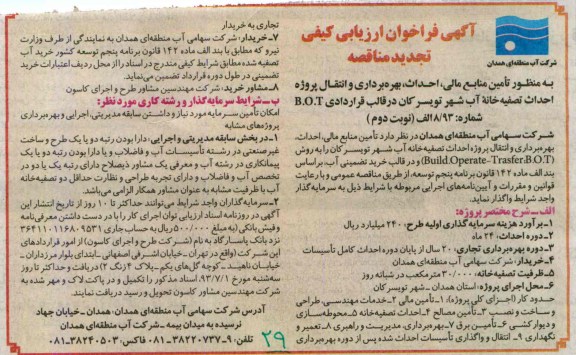 آگهی فراخوان ارزیابی کیفی
تجدید مناقصه
شرکت آب منطقه‌ای همدان
به منظور تأمین منابع مالی، احداث، بهره‌برداری و انتقال پروژه
احداث تصفیه‌خانهٔ آب شهر تویسرکان در قالب قراردادی B.O.T
شماره: ۸/۹۳ الف (نوبت دوم)
شرکت سهامی آب منطقه‌ای همدان در نظر دارد تأمین منابع مالی، احداث،
بهره‌برداری و انتقال پروژه احداث تصفیه‌خانه آب شهر تویسرکان را به روش
(Build.Operate-Trasfer.B.O.T) و در قالب خرید تضمینی آب، براساس
بند الف ماده ۱۴۲ قانون برنامه پنجم توسعه، از طریق مناقصه عمومی و با رعایت
قوانین و مقررات و آیین‌نامه‌های اجرایی مربوطه با شرایط ذیل به سرمایه‌گذار
واجد شرایط واگذار نماید.
الف ـ شرح مختصر پروژه:
۱ـ برآورد هزینه سرمایه‌گذاری اولیه طرح: ۲۴۰۰ میلیارد ریال
۲ـ دوره احداث: ۲۴ ماه
۳ـ دوره بهره‌برداری تجاری: ۲۰ سال از پایان دوره احداث کامل تأسیسات
۴ـ خریدار: شرکت سهامی آب منطقه‌ای همدان
۵ـ ظرفیت تصفیه‌خانه: ۳۰/۰۰۰ مترمکعب در شبانه روز
۶ـ محل اجرای پروژه: استان همدان ـ شهر تویسرکان
حدود کار (اجزای کلی پروژه): ۱ـ تأمین مالی ۲ـ خدمات مهندسی، طراحی
و ساخت و نصب ۳ـ تأمین مصالح ۴ـ احداث تصفیه‌خانه ۵ـ محوطه‌سازی
و دیوارکشی ۶ـ تأمین برق ۷ـ بهره‌برداری، مدیریت و راهبری ۸ـ تعمیر و
نگهداری ۹ـ انتقال و واگذاری تأسیسات احداث شده پس از دوره بهره‌برداری
تجاری به خریدار
۷ـ خریدار: شرکت سهامی آب منطقه‌ای همدان به نمایندگی از طرف وزارت
نیرو که مطابق با بند الف ماده ۱۴۲ قانون برنامه پنجم توسعه کشور خرید آب
تصفیه شده مطابق شرایط کیفی مندرج در اسناد را از محل ردیف اعتبارات خرید
تضمینی در طول دوره قرارداد تضمین می‌نماید.
۸ـ مشاور خرید: شرکت مهندسین مشاور طرح و اجرای کاسون
ب ـ شرایط سرمایه‌گذار و رشته کاری مورد نظر:
امکان تأمین سرمایه مورد نیاز و داشتن سابقه مدیریتی، اجرایی و بهره‌برداری
پروژه‌های مشابه
۱ـ در بخش سابقه مدیریتی و اجرایی: دارا بودن رتبه دو یا یک طرح و ساخت
غیرصنعتی در رشته تأسیسات آب و فاضلاب و یا دارا بودن رتبه دو یا یک
پیمانکاری در رشته آب و معرفی یک مشاور ذیصلاح دارای رتبه یک یا دو در
تخصص آب و فاضلاب و دارای تجربه طراحی و نظارت حداقل دو تصفیه‌خانه
آب با ظرفیت مشابه به عنوان مشاور همکار الزامی می‌باشد.
۲ـ سرمایه‌گذاران واجد شرایط می‌توانند حداکثر تا ۱۰ روز از تاریخ انتشار این
آگهی در روزنامه اسناد ارزیابی توان اجرای کار را با در دست داشتن معرفی‌نامه
و فیش بانکی (به مبلغ ۵۰۰/۰۰۰ ریال به حساب جاری ۳۶۴۱۱۰۱۱۶۸۰۹۵۳۱
نزد بانک پاسارگاد به نام (شرکت طرح و اجرای کاسون) از امور قراردادهای
این شرکت (واقع در تهران ـ خیابان اشرفی اصفهانی ـ ابتدای بلوار مرزداران ـ
خیابان ناهید ـ کوچه گل‌های یکم ـ پلاک ۴ زنگ ۲) دریافت و حداکثر تا روز
سه‌شنبه مورخ ۹۳/۷/۱، اسناد مذکور را تکمیل و در پاکت لاک و مهر شده به
شرکت مهندسین مشاور کاسون تحویل و رسید دریافت نمایند.
آدرس شرکت سهامی آب منطقه‌ای همدان: همدان ـ خیابان جهاد
نرسیده به میدان بیمه ـ شرکت آب منطقه‌ای همدان
تلفن: ۹ـ۳۸۲۲۰۷۳۷ـ۰۸۱ فاکس: ۳۸۲۴۰۵۰۳ـ۰۸۱
۲۹